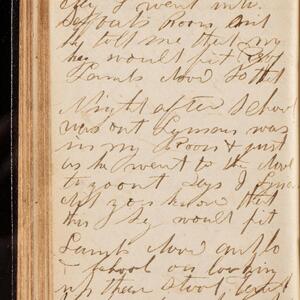 I went into
room and
he told me that my
key would fit
Lambs door so that
Night after School
was out Lyman was
in my Room & just
as he went to the door
to go out says I Lyman
did you know that
this Key would fit
Lambs door and lo
behold on looking
up there stood